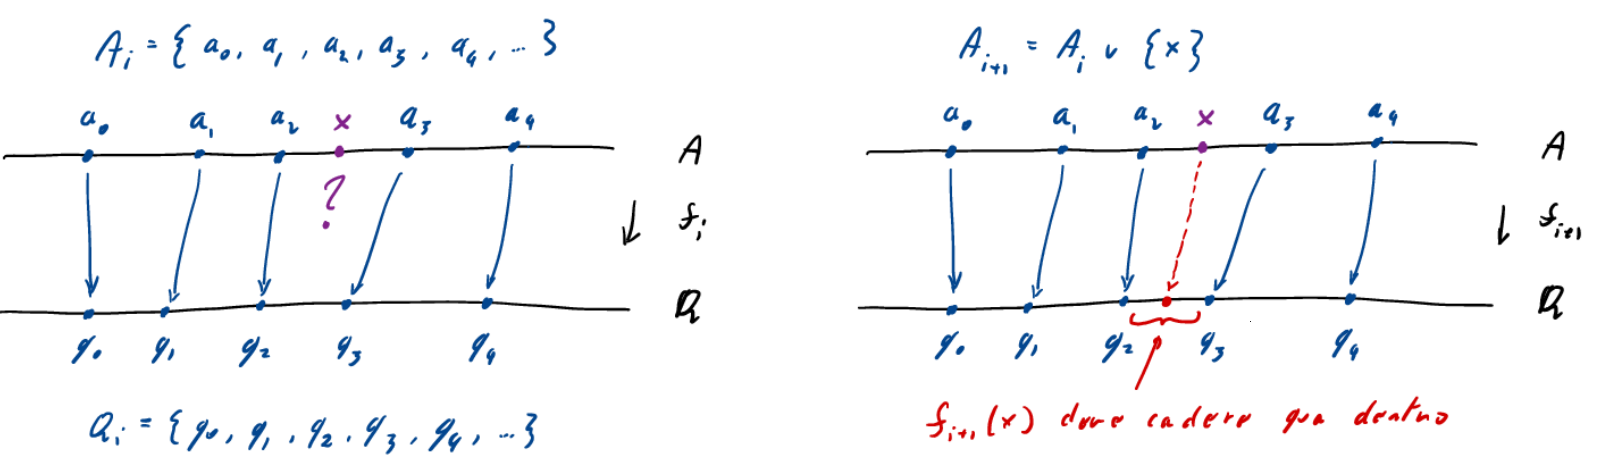 A_i = { a_0, a_1, a_2, a_3, a_4, ... }
a_0 a_1 a_2 x a_3 a_4
A
?
↓ f_i
Q
q_0 q_1 q_2 q_3 q_4
Q_i = { q_0, q_1, q_2, q_3, q_4, ... }
A_{i+1} = A_i ∪ {x}
a_0 a_1 a_2 x a_3 a_4
A
↓ f_{i+1}
Q
q_0 q_1 q_2 q_3 q_4
f_{i+1}(x) deve cadere qua dentro